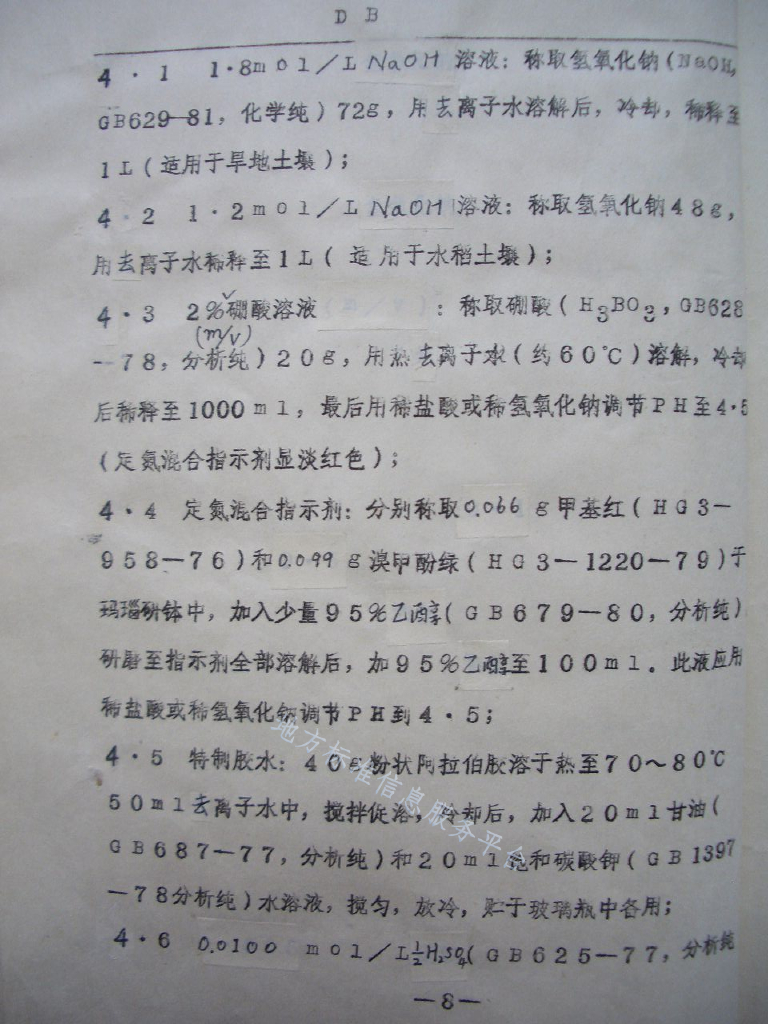 DB
4·1 1·8mol/L NaOH 溶液：称取氢氧化钠（NaOH，
GB629—81，化学纯）72g，用去离子水溶解后，冷却，稀释至
1L（适用于旱地土壤）；
4·2 1·2mol/L NaOH 溶液：称取氢氧化钠48g，
用去离子水稀释至1L（适用于水稻土壤）；
4·3 2%硼酸溶液：称取硼酸（H3BO3，GB628
(m/v)
—78，分析纯）20g，用热去离子水（约60℃）溶解，冷却
后稀释至1000ml，最后用稀盐酸或稀氢氧化钠调节PH至4·5
（定氮混合指示剂显淡红色）；
4·4 定氮混合指示剂：分别称取0.066g甲基红（HG3—
958—76）和0.099g溴甲酚绿（HG3—1220—79）于
玛瑙研钵中，加入少量95%乙醇（GB679—80，分析纯）
研磨至指示剂全部溶解后，加95%乙醇至100ml。此液应用
稀盐酸或稀氢氧化钠调节PH到4·5；
4·5 特制胶水：40g粉状阿拉伯胶溶于热至70～80℃
50ml去离子水中，搅拌促溶，冷却后，加入20ml甘油（
GB687—77，分析纯）和20ml饱和碳酸钾（GB1397
—78分析纯）水溶液，搅匀，放冷，贮于玻璃瓶中各用；
4·6 0.0100 mol/L½H2SO4（GB625—77，分析纯
—8—
地方标准信息服务平台